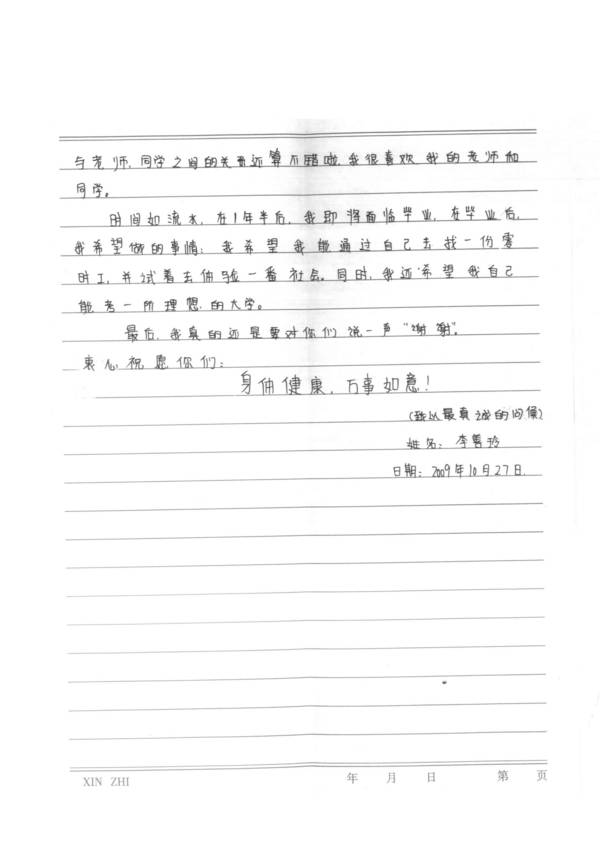 与老师,同学之间的关系还算不错啦,我很喜欢我的老师和
同学。
时间如流水,在1年半后,我即将面临毕业,在毕业后,
我希望做的事情:我希望我能通过自己去找一份零
时工,并试着去体验一番社会。同时,我还希望我自己
能考一所理想的大学。
最后,我真的还是要对你们说一声“谢谢”。
衷心祝愿你们:
身体健康,万事如意!
(致以最真诚的问候)
姓名:李
日期:2009年10月27日.
XIN ZHI 年 月 日 第 页